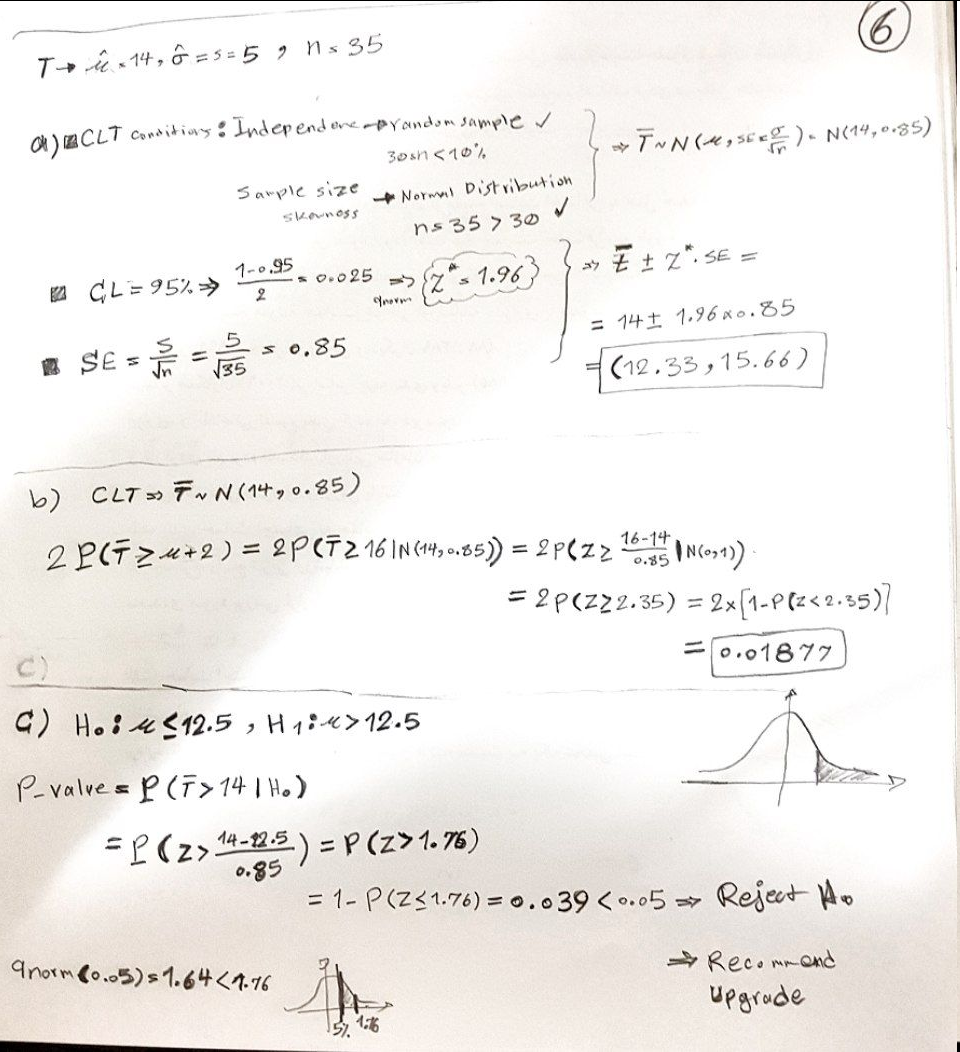 6
T → μ̂ = 14, σ̂ = s = 5, n = 35
a) CLT conditions: Independence → random sample ✓
30≤n<10%
Sample size → Normal Distribution
skewness
n = 35 > 30 ✓
⇒ T̄ ~ N(μ, SE = σ/√n) = N(14, 0.85)
CL = 95% ⇒ (1-0.95)/2 = 0.025 ⇒ {z* = 1.96}
qnorm
SE = S/√n = 5/√35 = 0.85
⇒ T̄ ± Z*. SE =
= 14 ± 1.96 × 0.85
= (12.33, 15.66)
b) CLT ⇒ T̄ ~ N(14, 0.85)
2 P(T̄ ≥ μ+2) = 2P(T̄ ≥ 16 | N(14, 0.85)) = 2P(Z ≥ (16-14)/0.85 | N(0,1))
= 2P(Z ≥ 2.35) = 2×[1-P(Z<2.35)]
= 0.01877
C)
C) H₀: μ ≤ 12.5, H₁: μ > 12.5
P_value = P(T̄ > 14 | H₀)
= P(Z > (14-12.5)/0.85) = P(Z > 1.76)
= 1- P(Z ≤ 1.76) = 0.039 < 0.05 ⇒ Reject H₀
⇒ Recommend
Upgrade
qnorm(0.05) = 1.64 < 1.76
5% 1.76